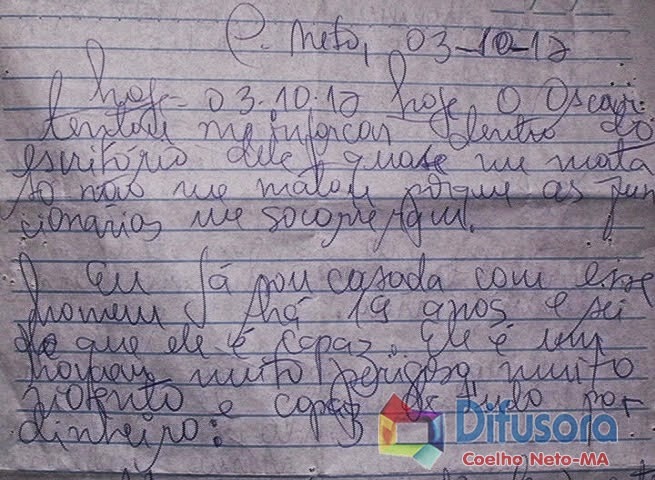 C. Neto, 03-10-17
hoje - 03.10.17 hoje o Oscar
tentou me inforcar dentro do
escritório dele quase me mata
só não me matou porque as fun
cionarias me socorreram.
Eu já sou casada com esse
homem há 19 anos e sei
do que ele é capaz. Ele é um
homem muito perigoso muito
violento e capaz de tudo por
dinheiro:
Difusora
Coelho Neto-MA